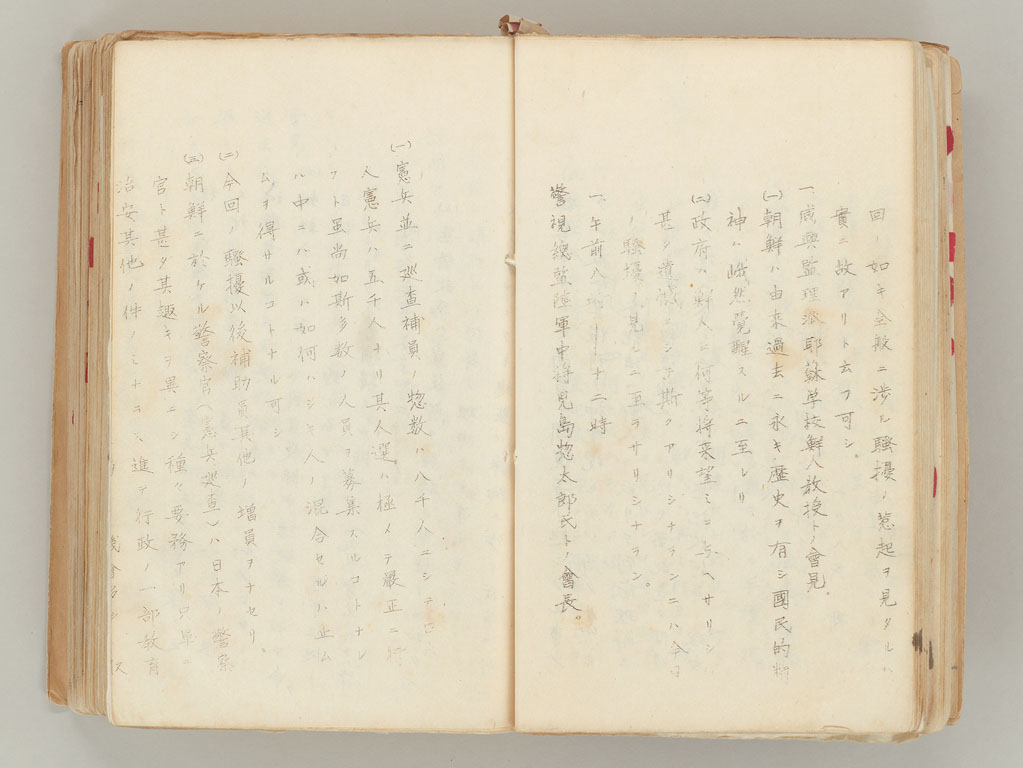 回ノ如キ全般ニ渉ル騒擾ノ惹起ヲ見タルハ
實ニ故アリト云フ可シ。
一、咸興監理派耶蘇學校鮮人教授トノ會見。
(一)朝鮮ハ由来過去ニ永キ歴史ヲ有シ國民的精
神ハ峨然覚醒スルニ至レリ
(二)政府ハ鮮人ニ何等将来望ミヲ与ヘサリシハ
甚シ遺憾ニシテ斯クアリシナランニハ今日
ノ騒擾ヲ見ルニ至ラサリシナラン。
一、午前八時――十二時
警視總監陸軍中将児島惣太郎氏トノ會長。
(一)憲兵並ニ巡査補員ノ惣数ハ八千人ニシテ
人憲兵ハ五千人ナリ其人選ハ極メテ厳正ニ行
フト虽尚如斯多数ノ人員ヲ募集スルコトナレ
ハ中ニハ或ハ如何ハシキ人ノ混合セルハ止ム
ムヲ得サルコトナル可シ
(二)今回ノ騒擾以後補助員其他ノ増員ヲナセリ、
(三)朝鮮ニ於ケル警察官(憲兵巡査)ハ日本ノ警察
官ト甚タ其趣キヲ異ニシ種々要務アリ只単ニ
治安其他ノ件ノミナラス進テ行政ノ一部教育